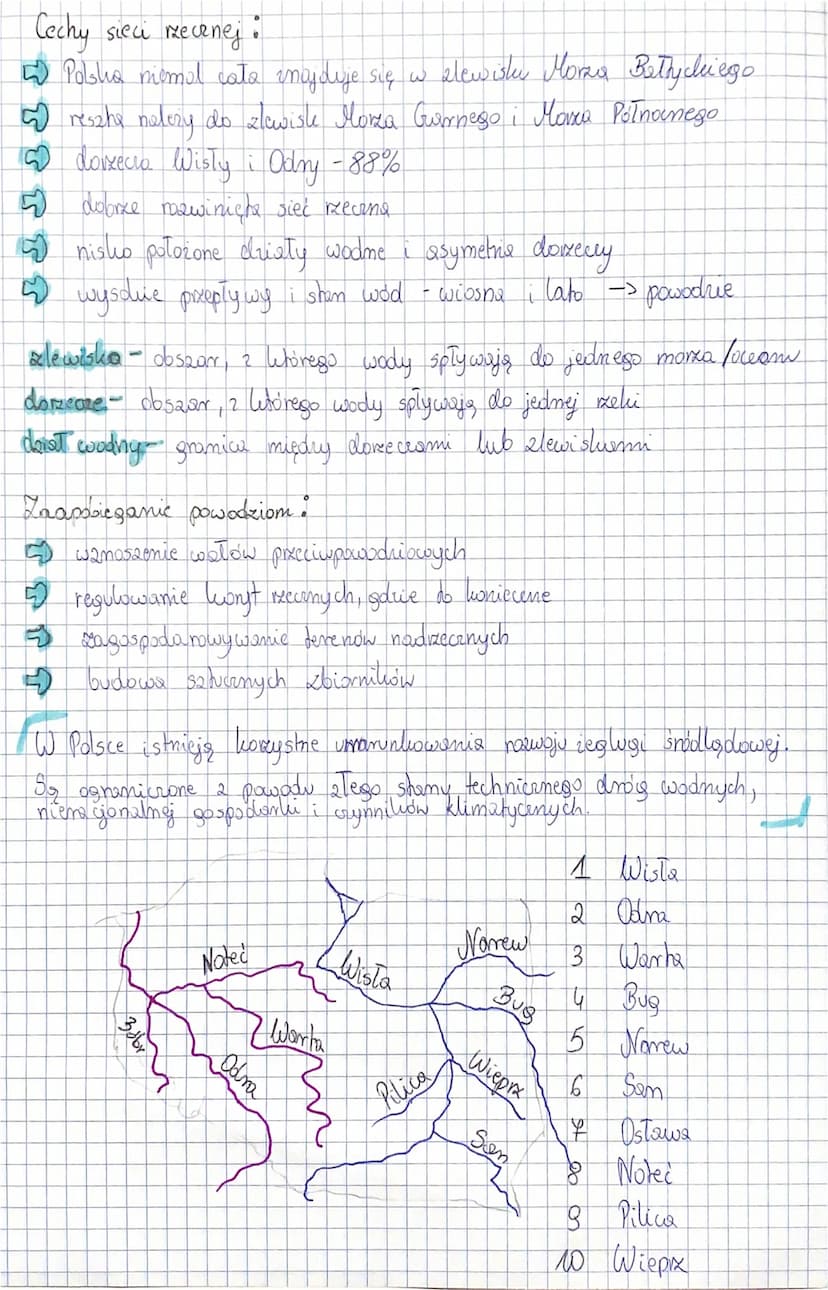 Cechy sieci rzecznej:
⇨ Polska niemal cała znajduje się w zlewisku Morza Bałtyckiego
⇨ reszta należy do zlewisk Morza Czarnego i Morza Północnego
⇨ dorzecza Wisły i Odry - 88%
⇨ dobrze rozwinięta sieć rzeczna
⇨ nisko położone działy wodne i asymetria dorzeczy
⇨ wysokie przepływy i stan wód - wiosna i lato -> powodzie
zlewisko - obszar, z którego wody spływają do jednego morza/oceanu
dorzecze - obszar, z którego wody spływają do jednej rzeki
dział wodny - granica między dorzeczami lub zlewiskami
Zaapobieganie powodziom:
⇨ wznoszenie wałów przeciwpowodziowych
⇨ regulowanie koryt rzecznych, gdzie to konieczne
⇨ zagospodarowywanie terenów nadrzecznych
⇨ budowa sztucznych zbiorników
W Polsce istnieją korzystne uwarunkowania rozwoju żeglugi śródlądowej.
Są ograniczone z powodu złego stanu technicznego dróg wodnych,
nieracjonalnej gospodarki i czynników klimatycznych.
1 Wisła
2 Odra
3 Warta
4 Bug
5 Narew
6 San
7 Osława
8 Noteć
9 Pilica
10 Wieprz
Noteć
Wisła
Narew
Bug
Warta
Odra
Pilica
Wieprz
San